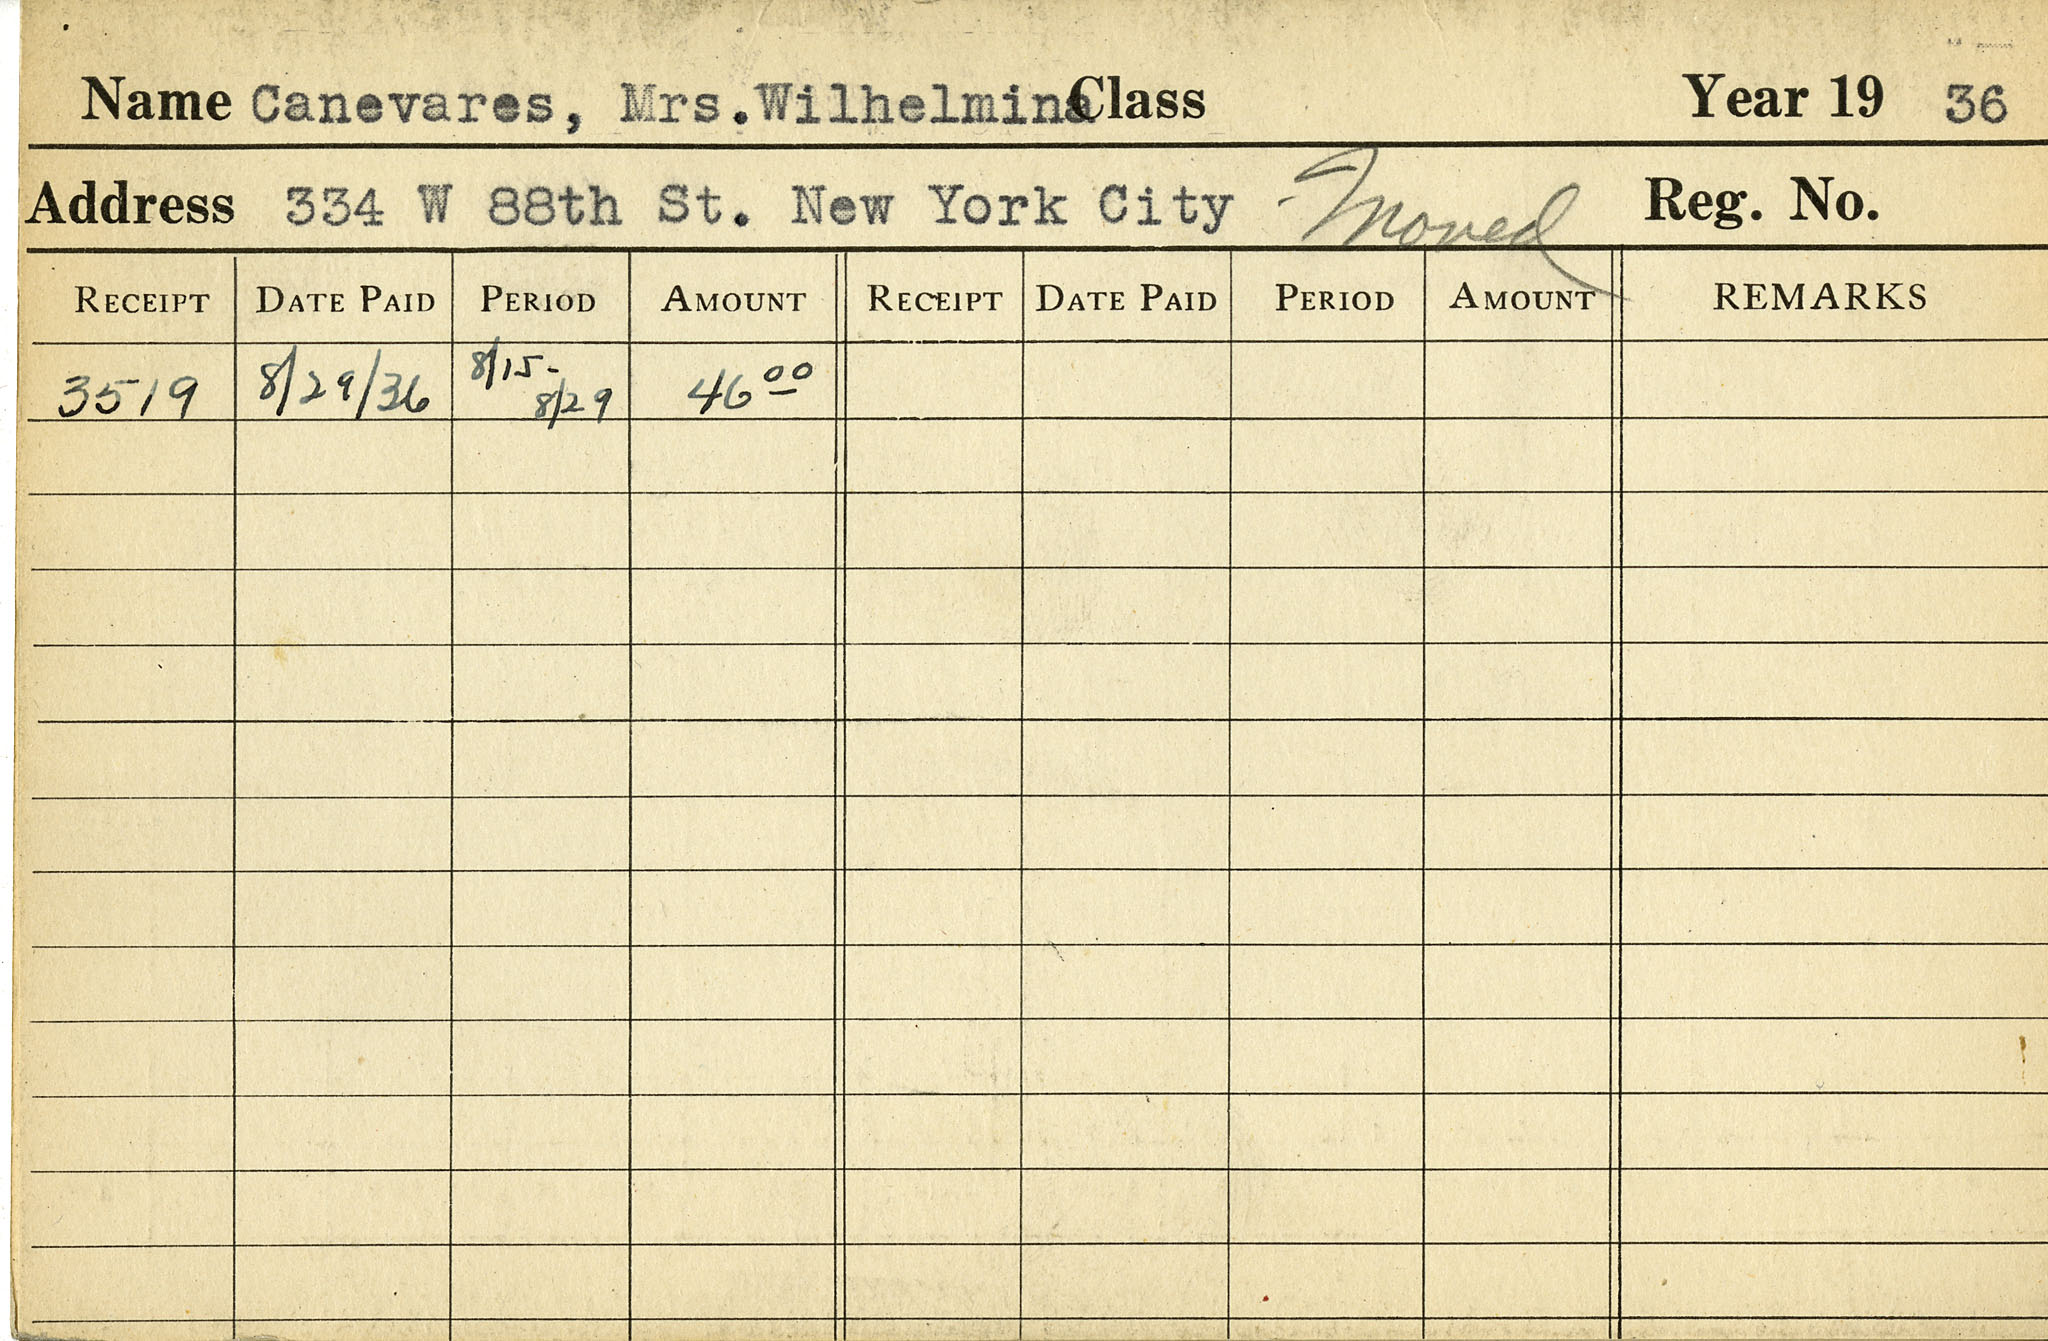 Name Canevares, Mrs.Wilhelmina Class Year 19 36
Address 334 W 88th St. New York City Moved Reg. No.
RECEIPT DATE PAID PERIOD AMOUNT RECEIPT DATE PAID PERIOD AMOUNT REMARKS
3519 8/29/36 8/15- 46 00
8/29